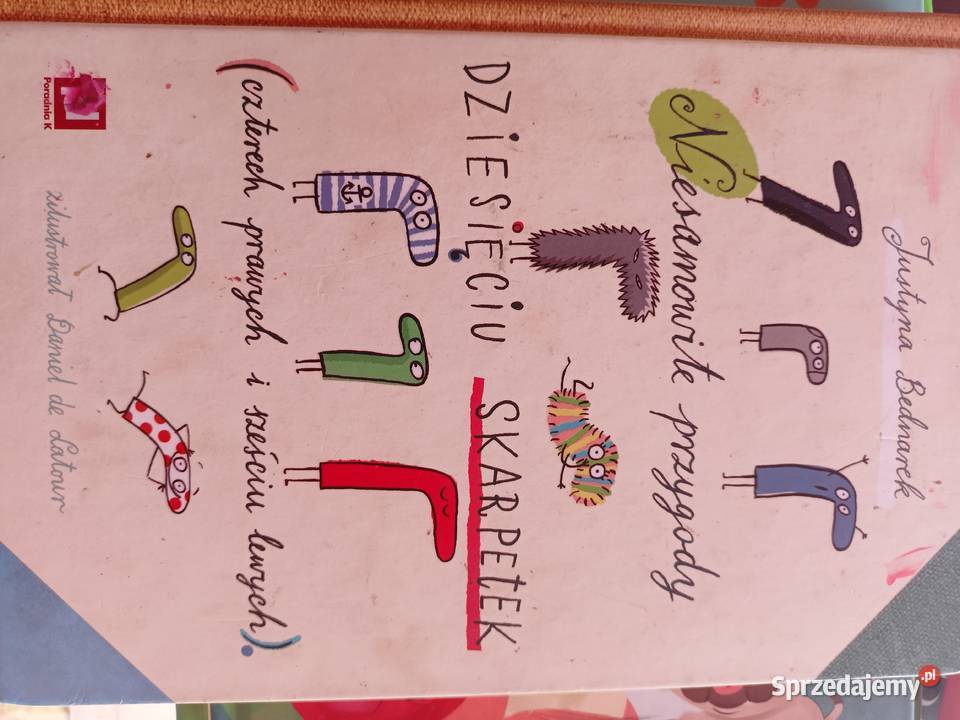 Justyna Bednarek
Niesamowite przygody
DZIESIĘCIU SKARPETEK
(czterech prawych i sześciu lewych).
zilustrował Daniel de Latour
Poradnia K
Sprzedajemy.pl